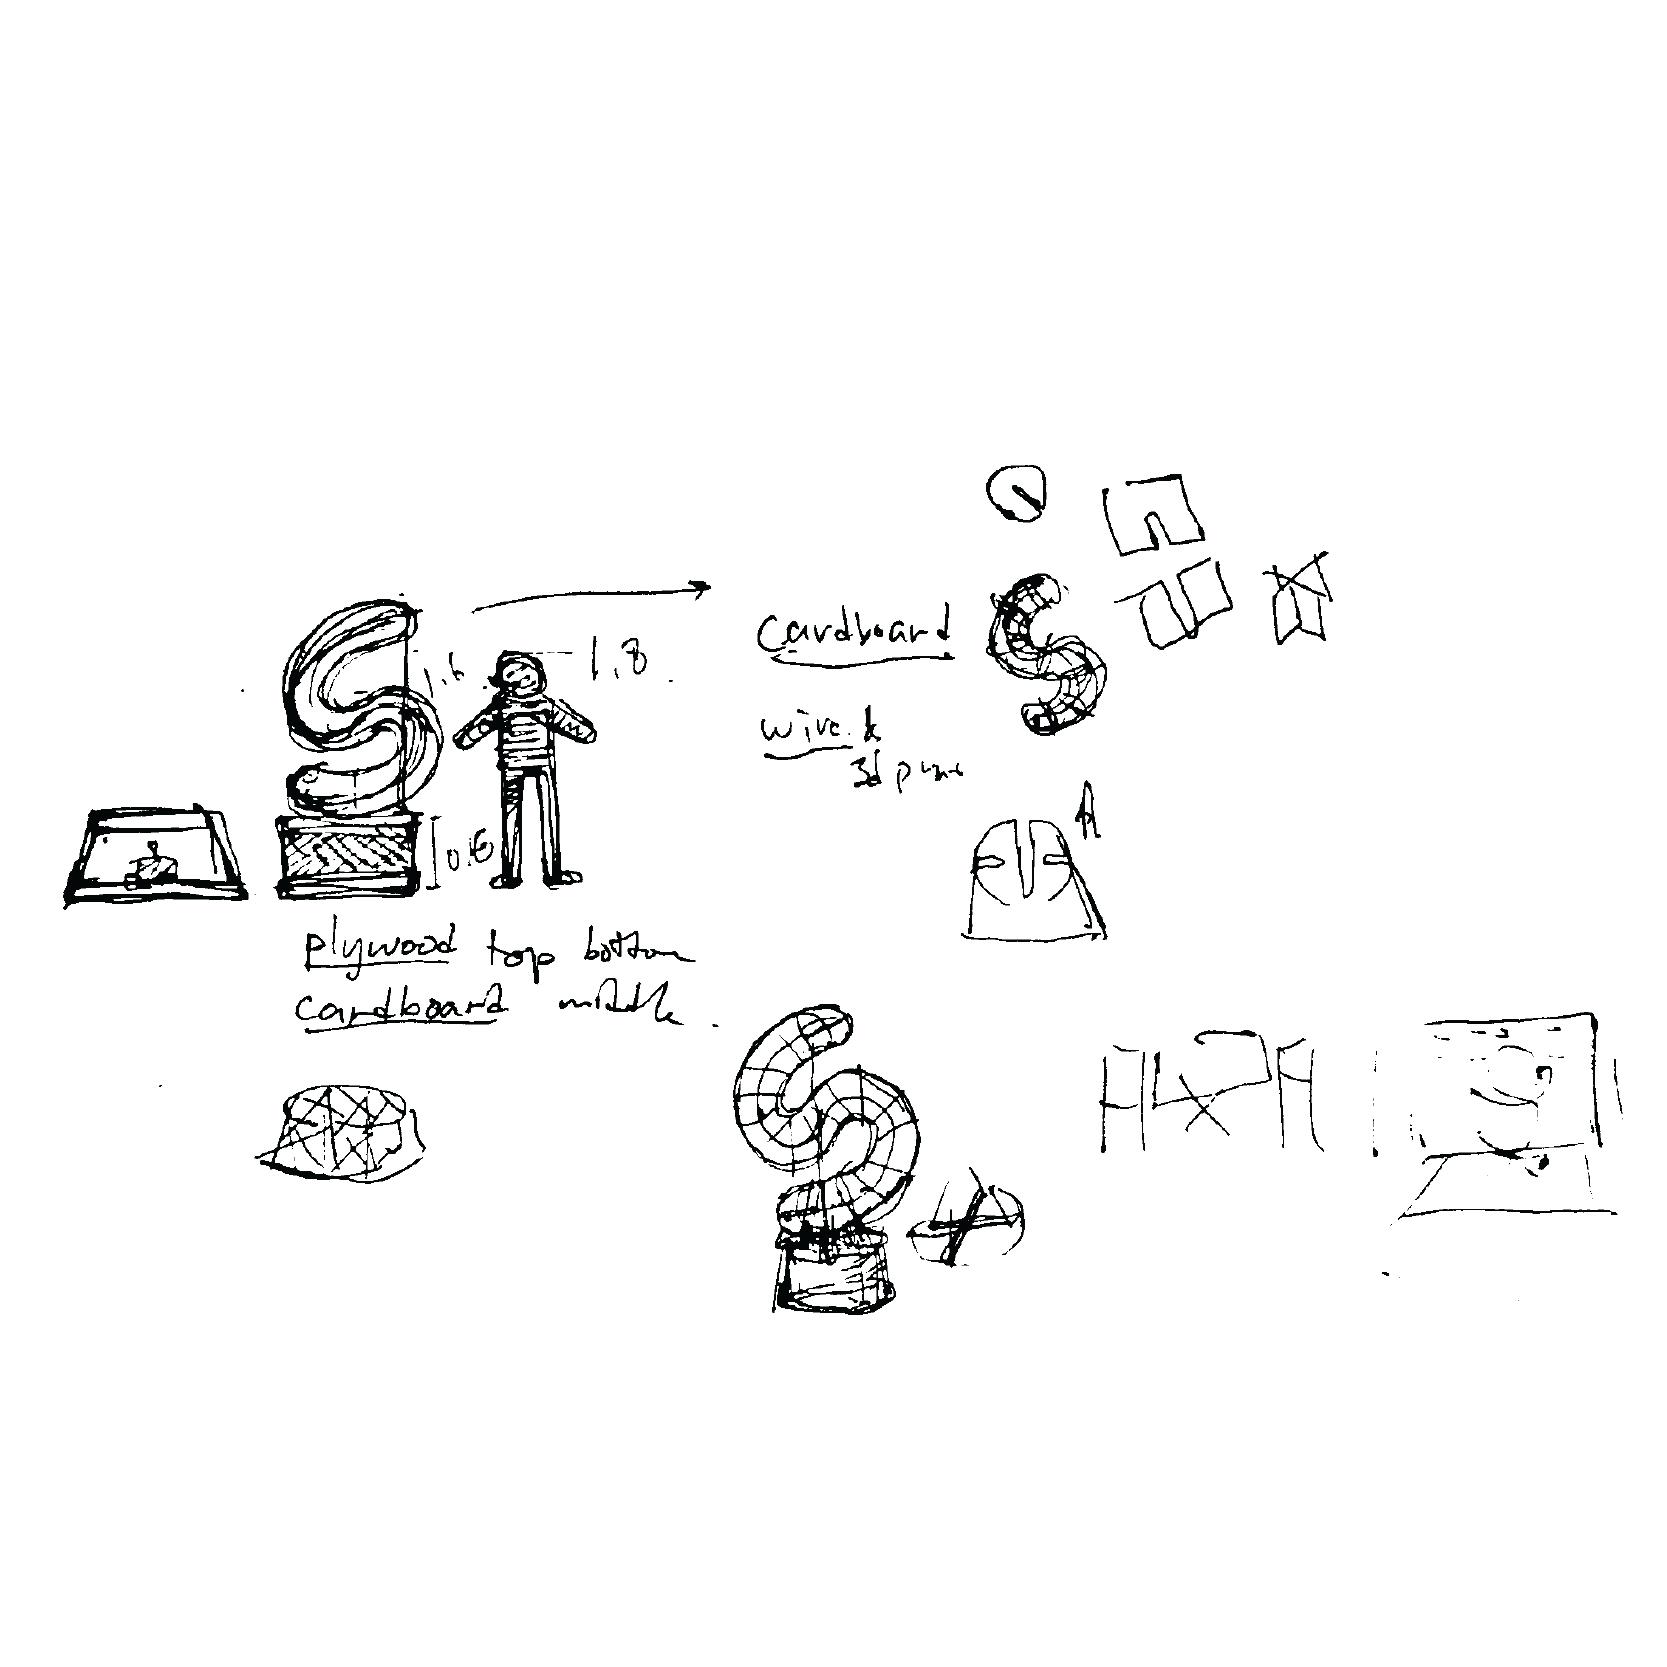 1.6
1.8
0.6
plywood top bottom
cardboard middle
Cardboard
wire &
3d